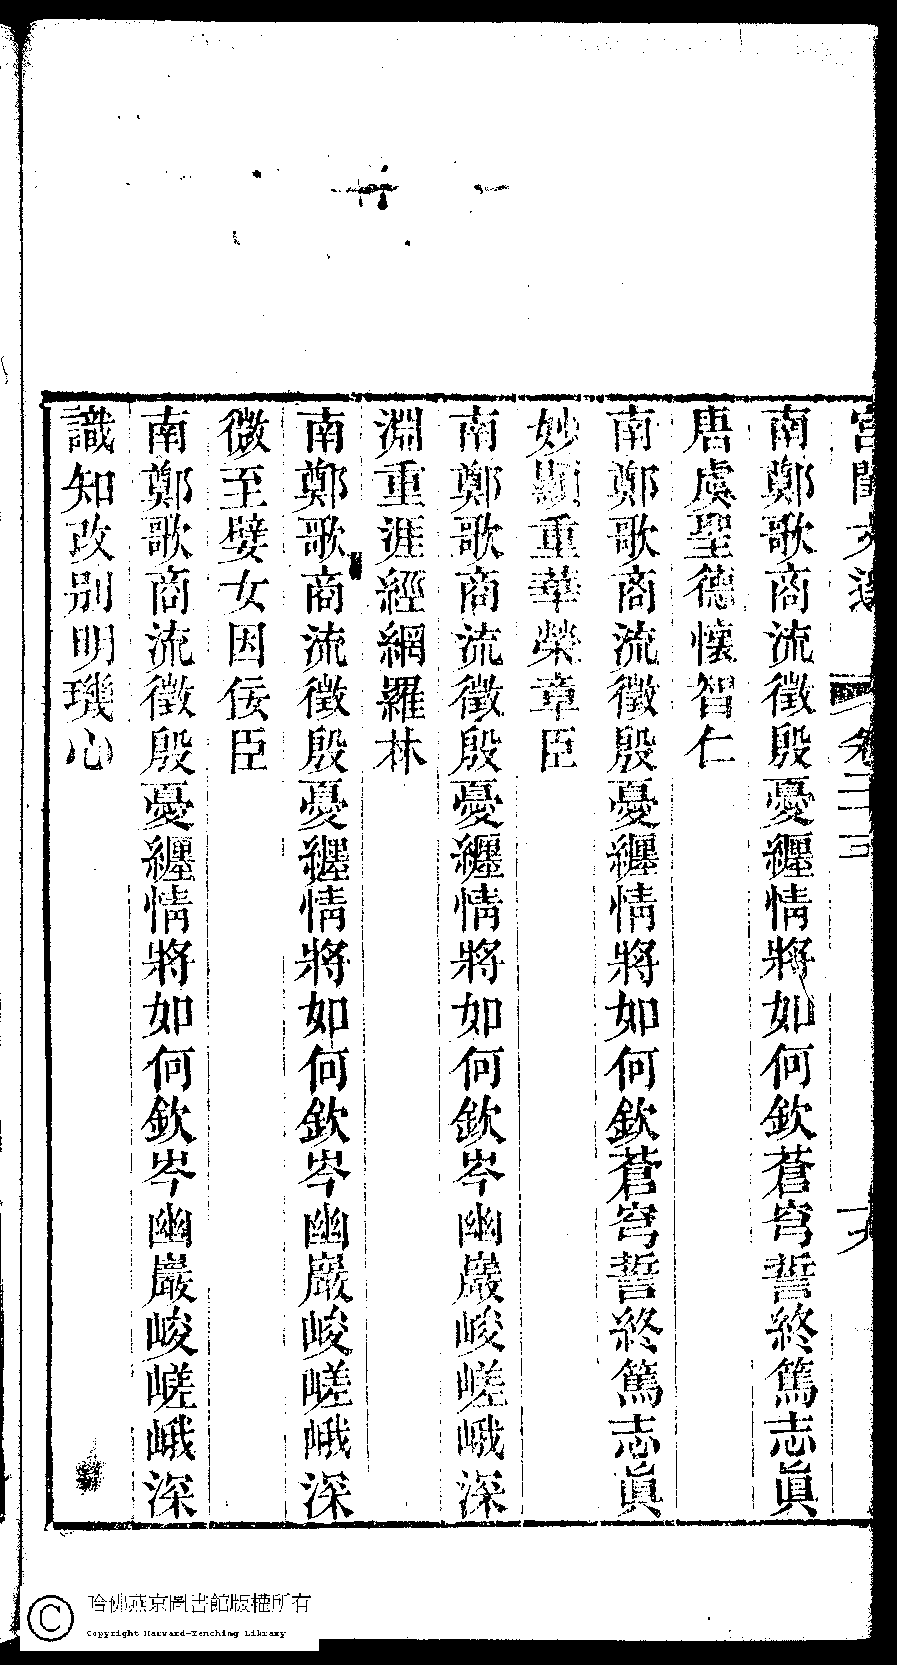 宮閨文選 卷二十三
南鄭歌商流徵殷憂纒情將如何欽蒼穹誓終篤志眞
唐虞聖德懷智仁
南鄭歌商流徵殷憂纒情將如何欽蒼穹誓終篤志眞
妙顯重華榮章臣
南鄭歌商流徵殷憂纒情將如何欽岑幽巖峻嵯峨深
淵重涯經網羅林
南鄭歌商流徵殷憂纒情將如何欽岑幽巖峻嵯峨深
微至嬖女因佞臣
南鄭歌商流徵殷憂纒情將如何欽岑幽巖峻嵯峨深
識知改別明璣心
哈佛燕京圖書館版權所有
Copyright Harvard-Yenching Library